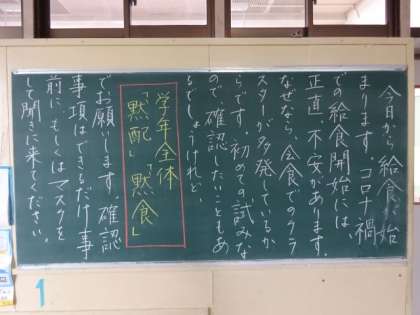 今日から給食が始
まります。コロナ禍
での給食開始には、
正直 不安があります。
なぜなら、会食でのクラ
スターが多発しているか
らです。初めての試みな
ので、確認したいこともあ
るでしょうけれど、
学年全体
「黙配」「黙食」
でお願いします。確認
事項はできるだけ 事
前に、もしくはマスクを
して聞きに来てください。
1